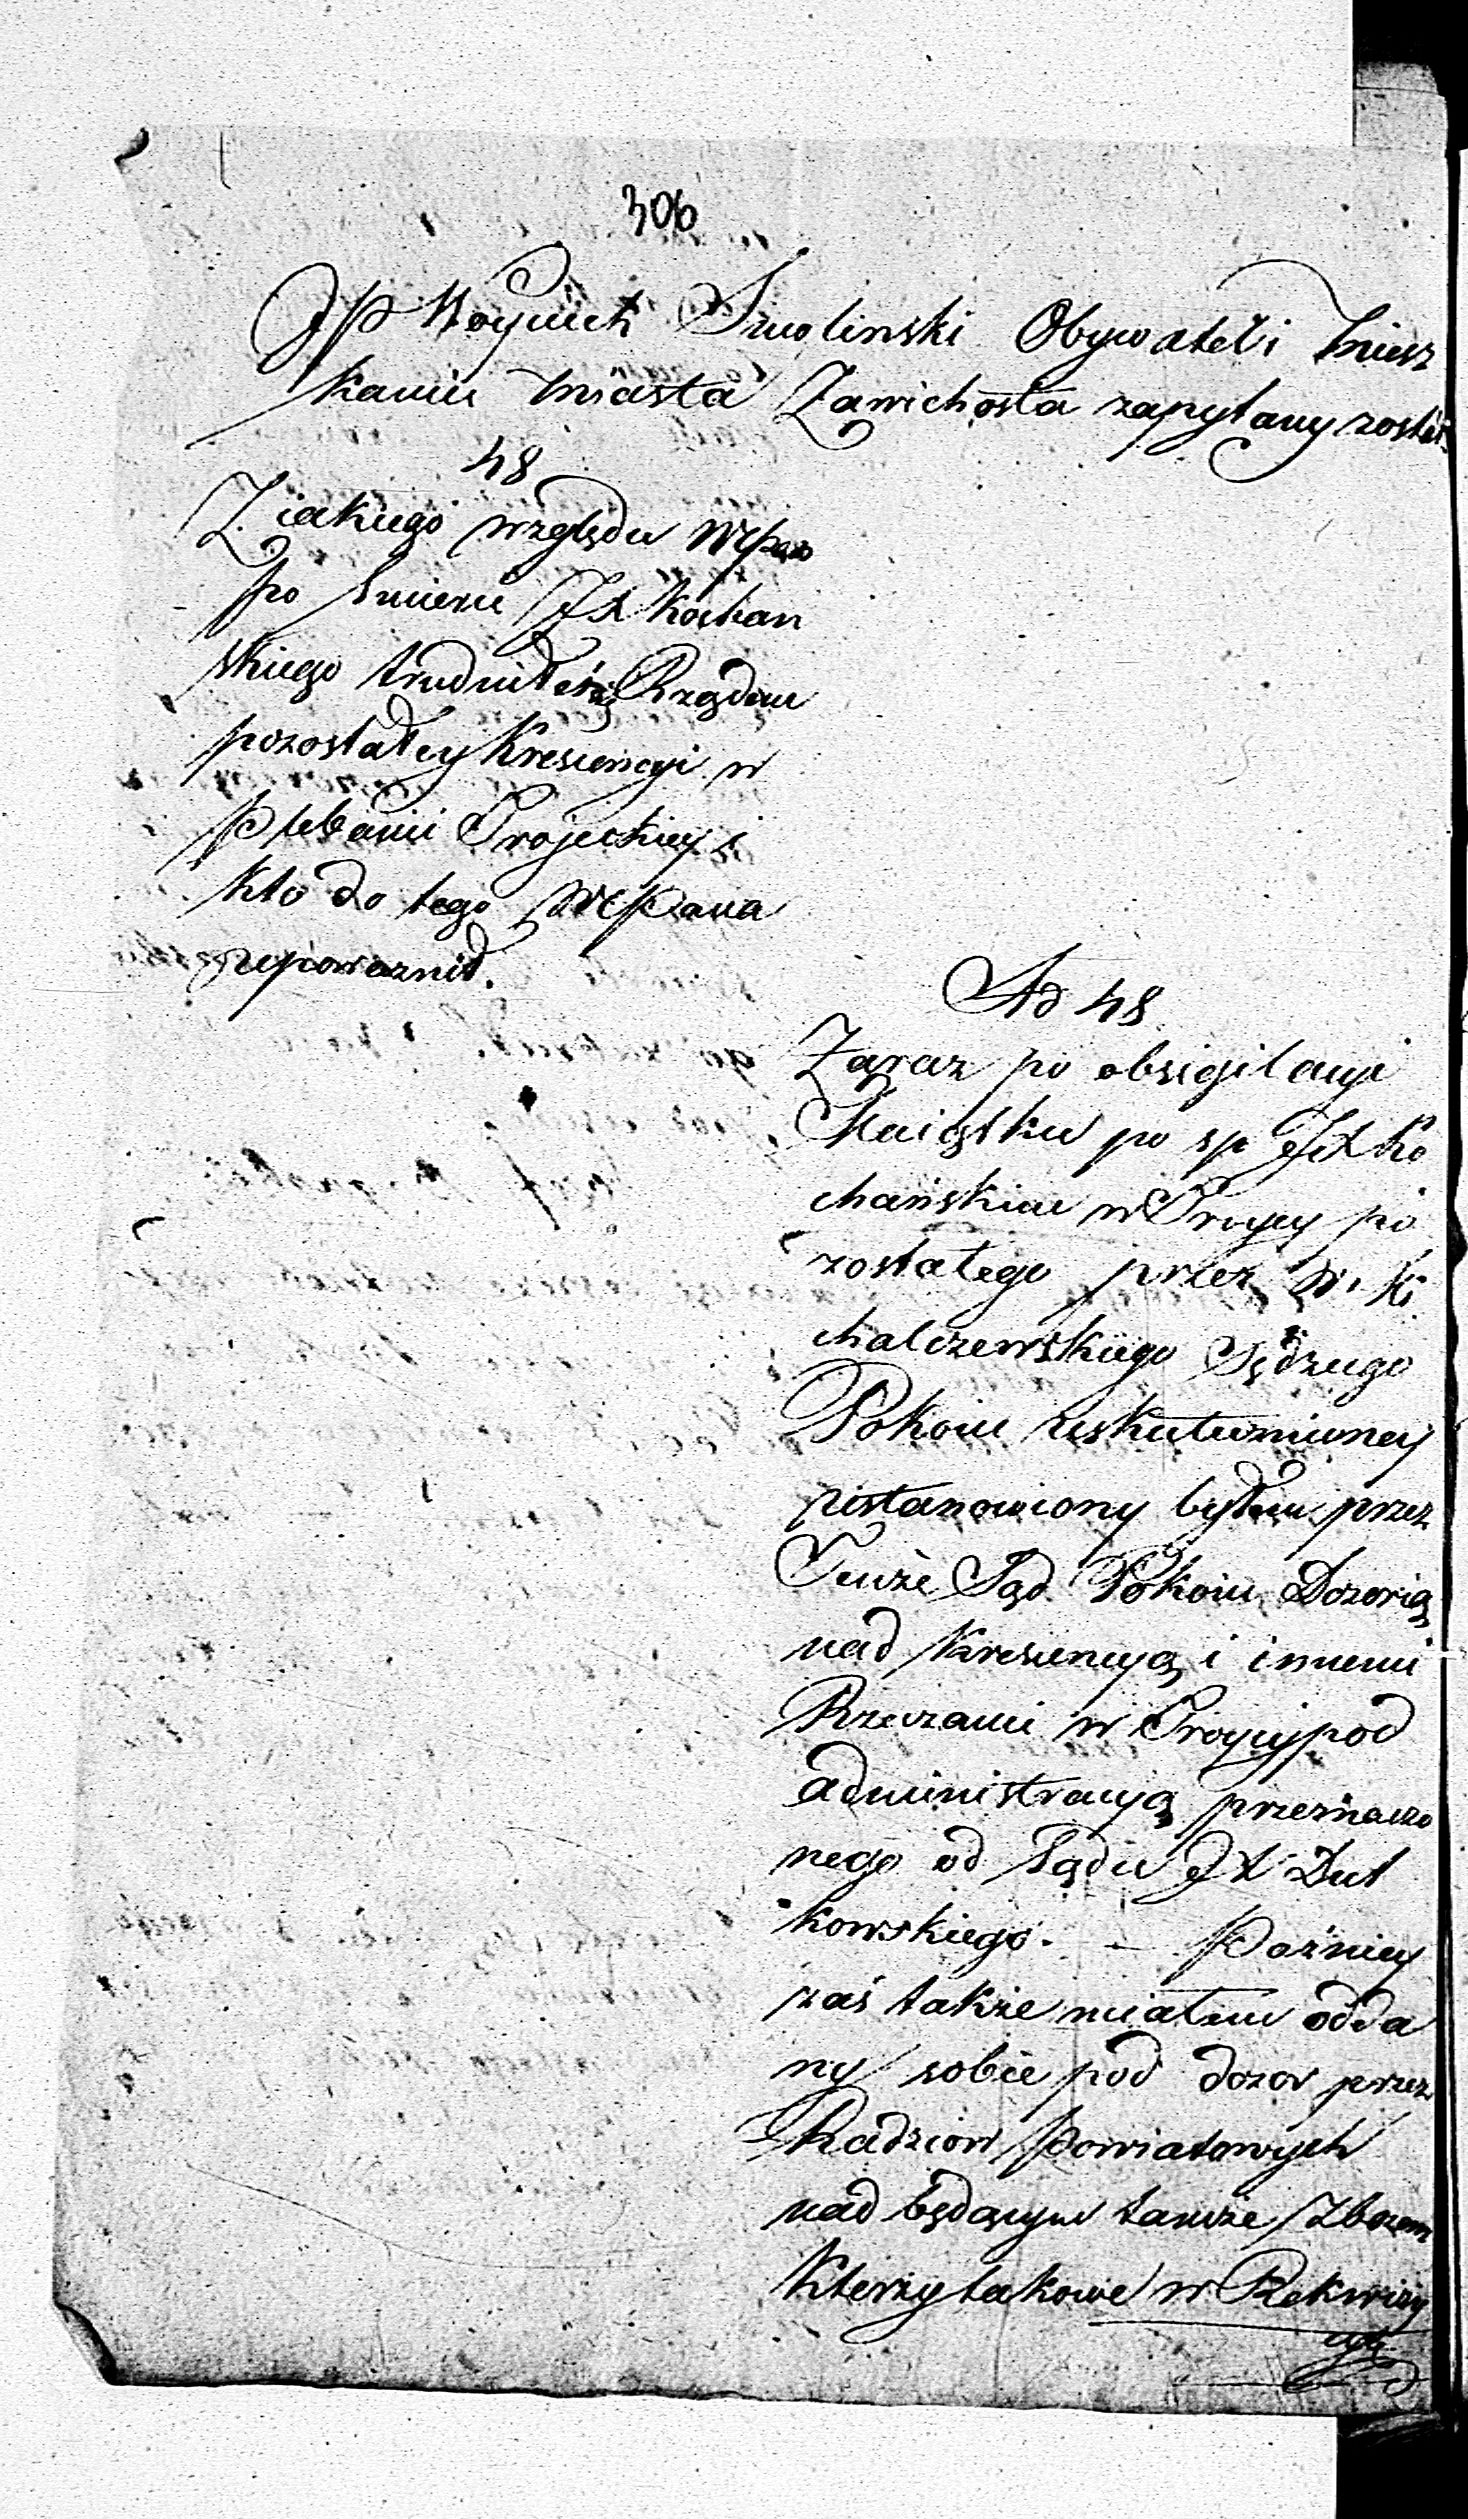 306
JP Woyciech Smolinski Obywatel i Miesz
kaniec Miasta Zawichosta zapytany został.
48
Z iakiego względu WPan
po Smierci JX Kochan
skiego trudniłeś się Rządem
pozostałey Krescencyi w
Plebanii Trojeckiey i
kto do tego WPana
upowaznił.
Ad 48
Zaraz po obsigilacyi
Maiątku po sp JX Ko
chańskim w Troycy po
zostałego przez W. Ki
chalczewskiego Sędziego
Pokoiu uskutecznioney
postanowiony byłem przez
Tenże Sąd Pokoiu Dozorcą
nad Krescencyą i innemi
Rzeczami w Troycy pod
administracyą przeznaczo
nego od Sądu JX Dut
kowskiego. — Pozniey
zaś także miałem odda
ny sobie pod dozor przez
Radziow Powiatowych
nad będącym tamże Zbozem
Ktorzy takowe w Rekwizy
cyi